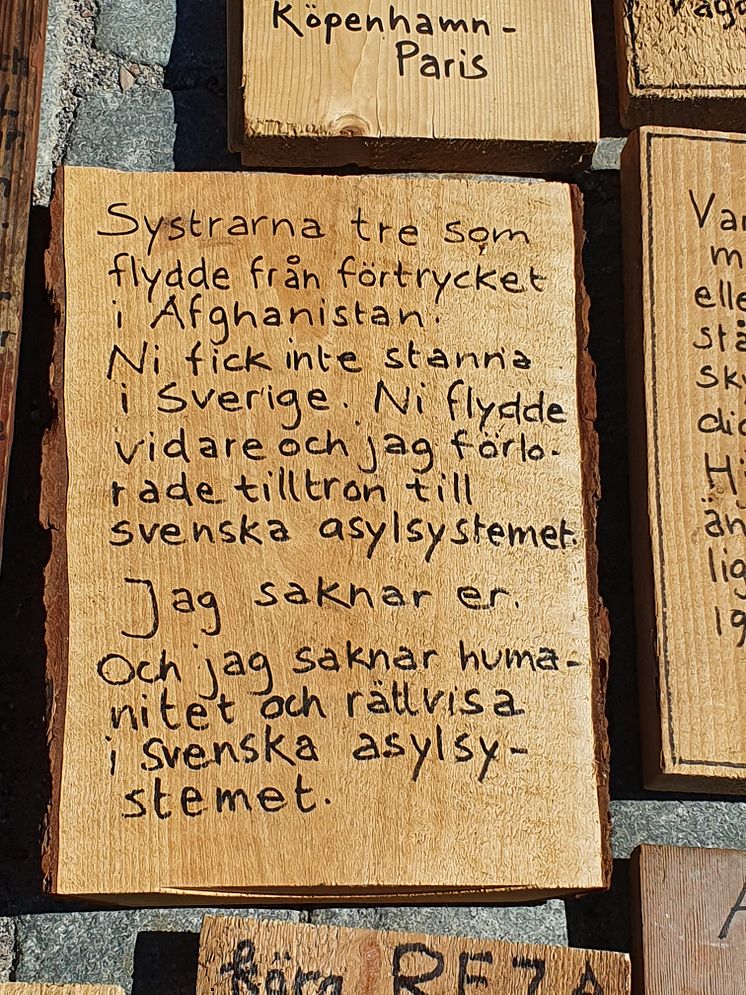 Köpenhamn-
Paris
Systrarna tre som
flydde från förtrycket
i Afghanistan.
Ni fick inte stanna
i Sverige. Ni flydde
vidare och jag förlo-
rade tilltron till
svenska asylsystemet.
Jag saknar er.
Och jag saknar huma-
nitet och rättvisa
i svenska asylsy-
stemet.
Var
m
elle
stå
sk
dig
Hj
än
lig
19
kära REZA